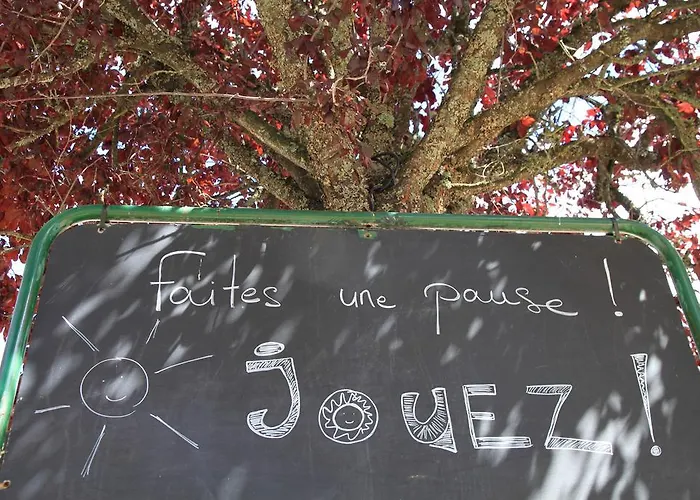 Faites une pause !
JOUEZ !